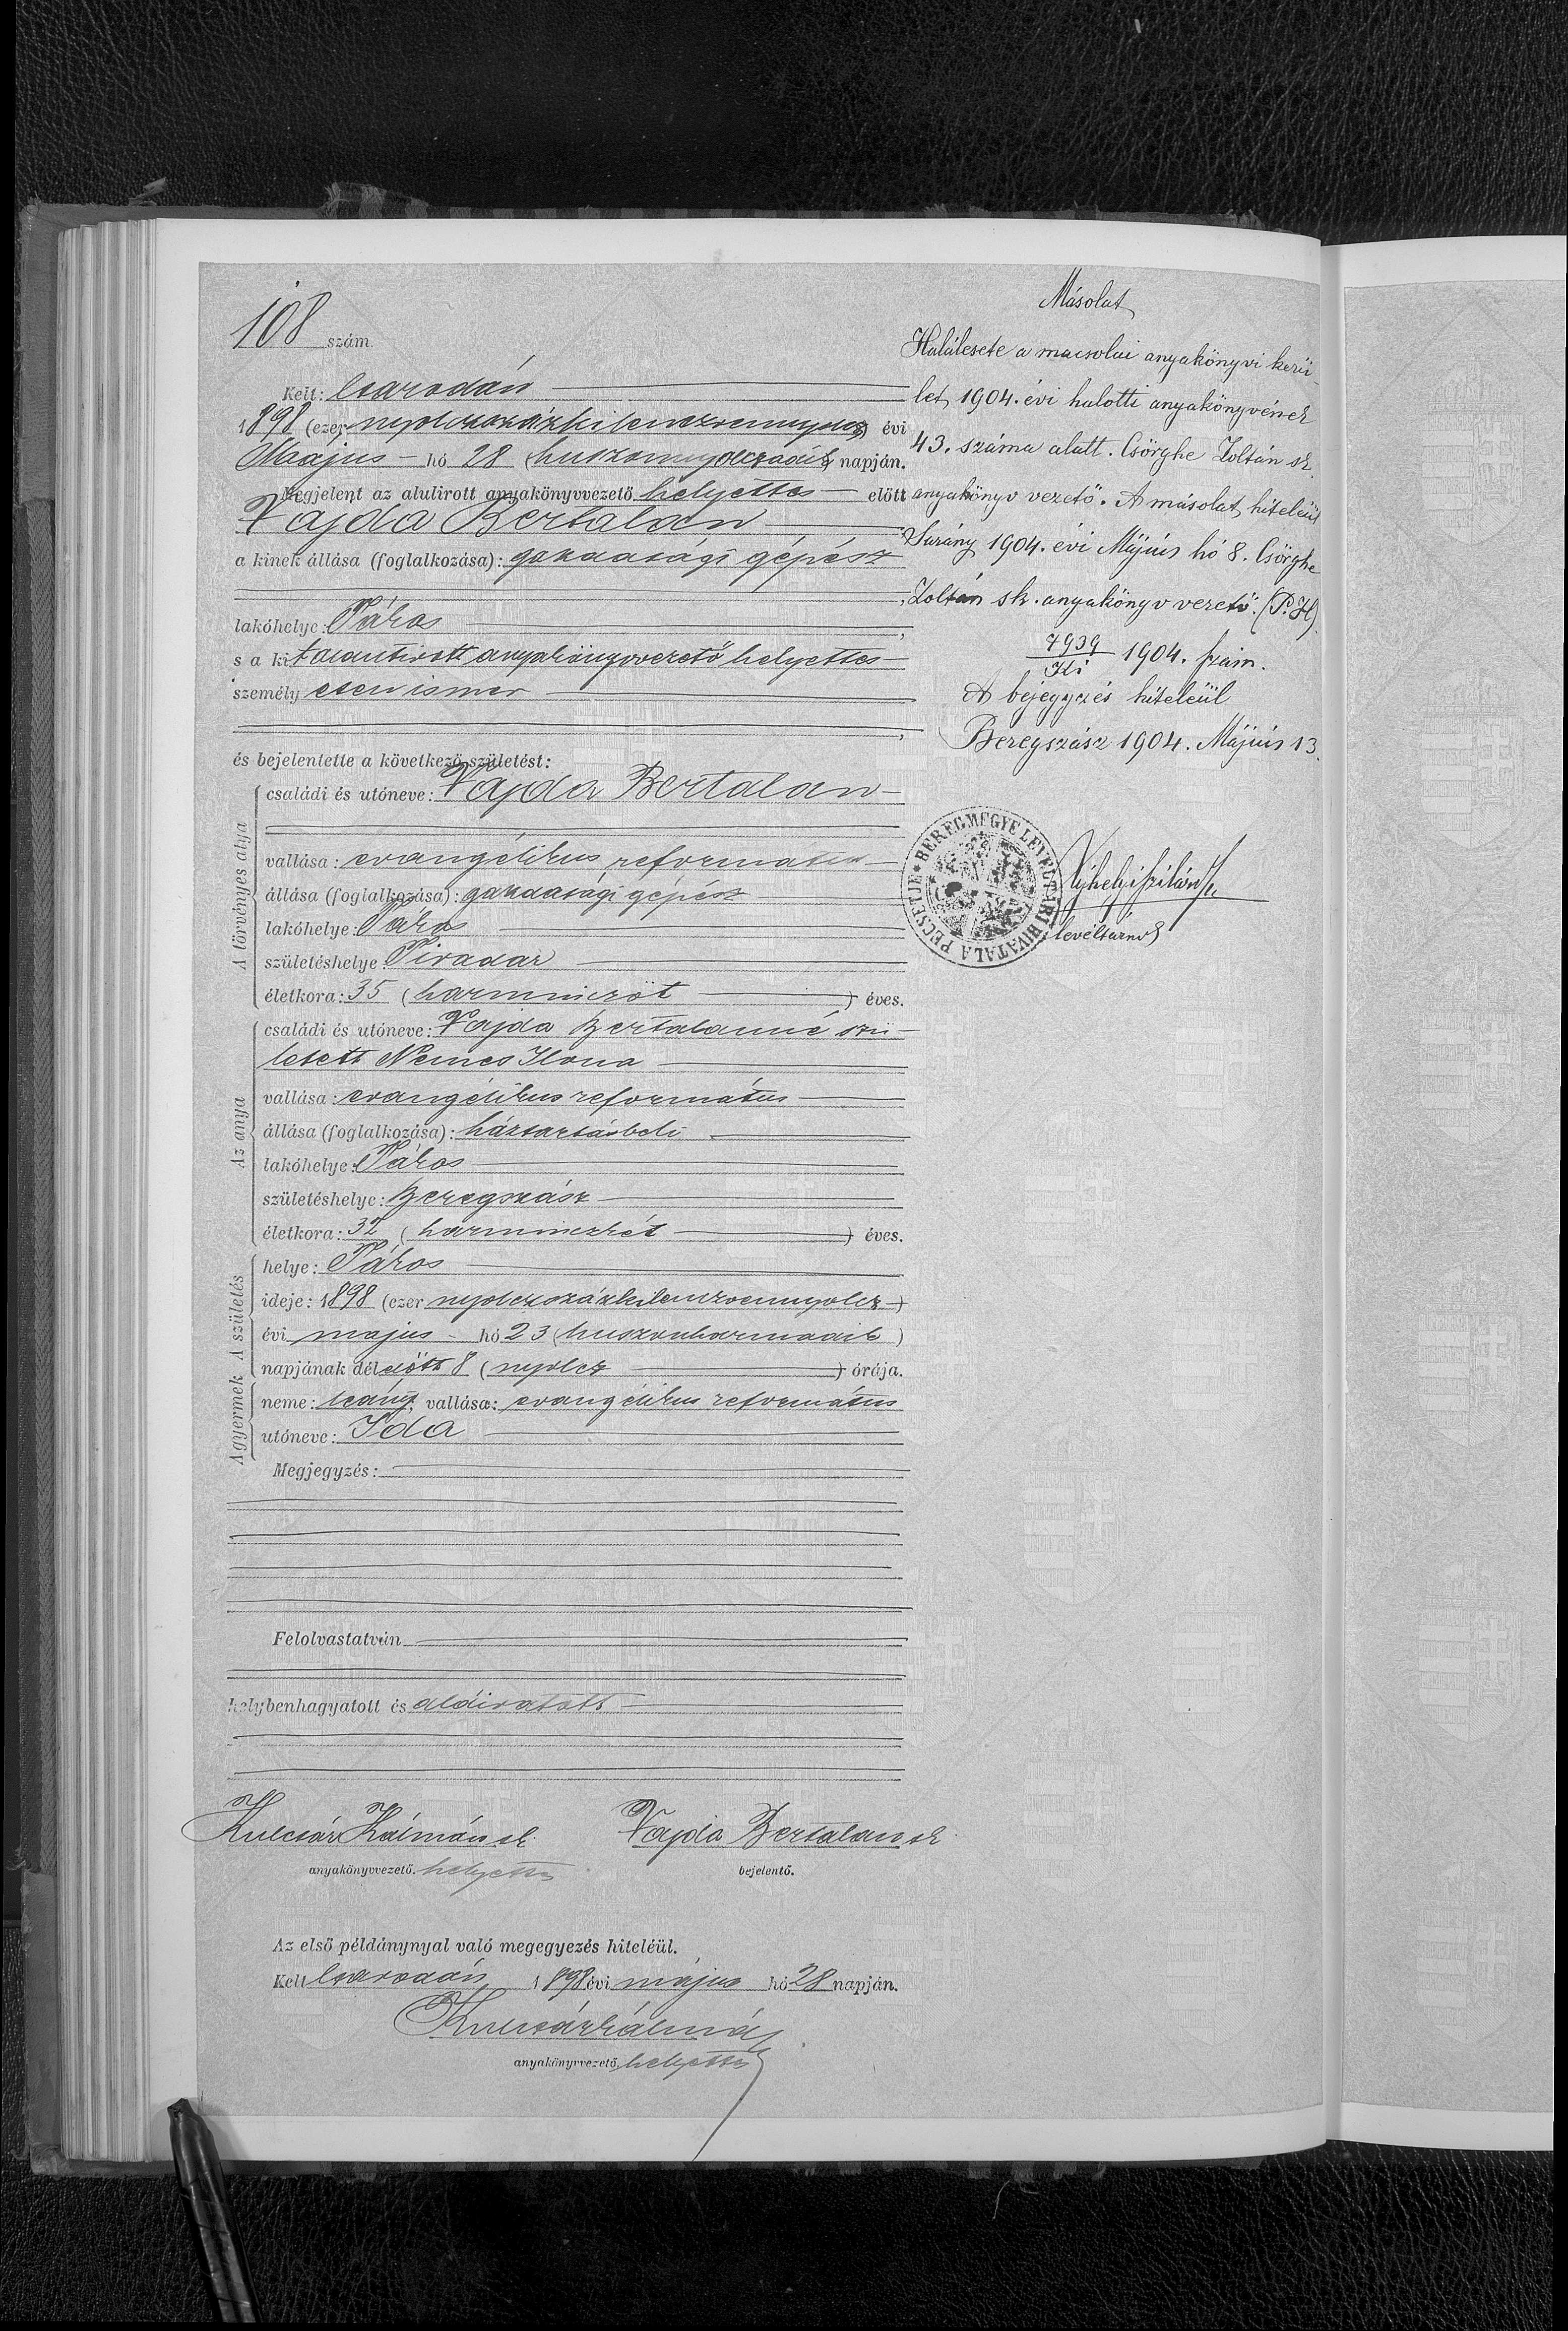 108 szám.
Kelt: Csarodán
1898 (ezer nyolczszázkilenczvennyolcz) évi
Május hó 28 (huszonnyolczadik) napján.
Megjelent az alulirott anyakönyvvezető helyettes előtt
Vajda Bertalan
a kinek állása (foglalkozása): gazdasági gépész
lakóhelye: Tákos
s a kit alantirott anyakönyvvezető helyettes
személyesen ismer
és bejelentette a következő születést:
A törvényes atyja
családi és utóneve: Vajda Bertalan
vallása: evangélikus református
állása (foglalkozása): gazdasági gépész
lakóhelye: Tákos
születéshelye: Tivadar
életkora: 35 (harminczöt) éves.
Az anya
családi és utóneve: Vajda Bertalanné szü-
letett Nemes Ilona
vallása: evangélikus református
állása (foglalkozása): háztartásbeli
lakóhelye: Tákos
születéshelye: Beregszász
életkora: 32 (harminczkét) éves.
A születés
helye: Tákos
ideje: 1898 (ezer nyolczszázkilenczvennyolcz)
évi majus hó 23 (huszonharmadik)
napjának délelőtt 8 (nyolcz) órája.
A gyermek
neme: leány, vallása: evangélikus református
utóneve: Ida
Megjegyzés:
Felolvastatván
helybenhagyatott és aláiratott
Kulcsár Kálmán sk. Vajda Bertalan sk
anyakönyvvezető. helyettes bejelentő.
Az első példánynyal való megegyezés hiteléül.
Kelt Csarodán 1898 évi május hó 28 napján.
Kulcsár Kálmán
anyakönyvvezető, helyettes
Másolat
Halálesete a macsolai anyakönyvi kerü-
let 1904. évi halotti anyakönyvének
43. száma alatt. Csörghe Zoltán sk
anyakönyv vezető. A másolat hiteléül
Surány 1904. évi Május hó 8. Csörghe
Zoltán sk. anyakönyv vezető. (P.H).
7939
Ki 1904. szám.
A bejegyzés hiteléül
Beregszász 1904. Május 13.
BEREGMEGYE LEVÉLTÁRI HIVATALA PECSÉTJE
levéltárnok